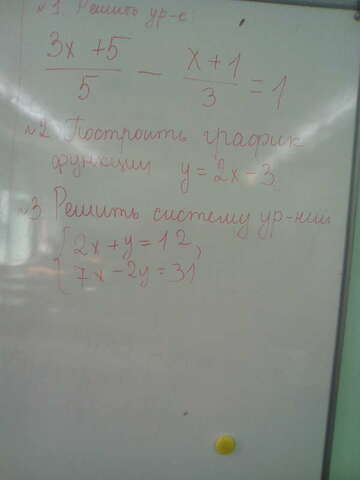 №1 Решить ур-е
3x+5/5 - x+1/3 = 1
№2 Построить график
функции y = 2x-3.
№3 Решить систему ур-ний
{2x+y=12,
{7x-2y=31